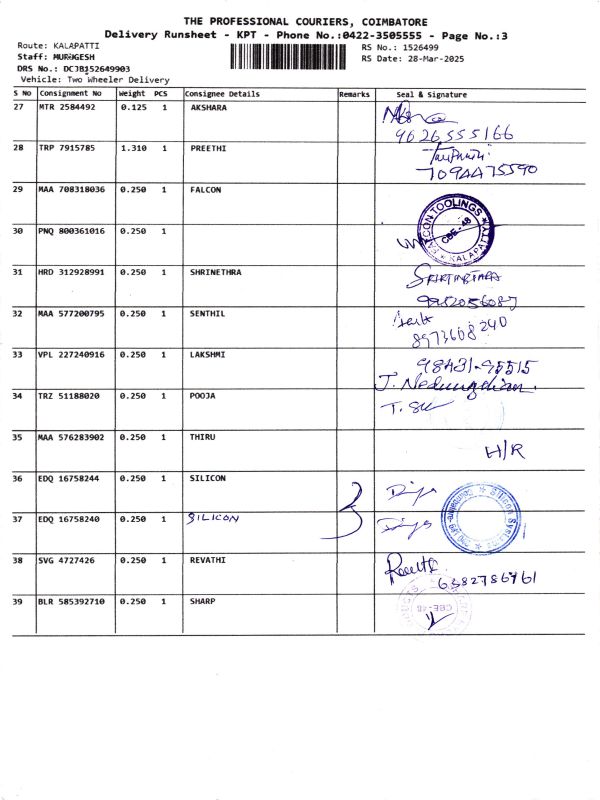 THE PROFESSIONAL COURIERS, COIMBATORE
Delivery Runsheet - KPT - Phone No.:0422-3505555 - Page No.:3
Route: KALAPATTI
RS No.: 1526499
Staff: MURUGESH
RS Date: 28-Mar-2025
DRS No.: DCJB152649903
Vehicle: Two Wheeler Delivery
S No Consignment No Weight PCS Consignee Details Remarks Seal & Signature
27 MTR 2584492 0.125 1 AKSHARA
9626555166
28 TRP 7915785 1.310 1 PREETHI
29 MAA 708318036 0.250 1 FALCON
FALCON TOOLINGS KALAPATTI CBE-48
30 PNQ 800361016 0.250 1
31 HRD 312928991 0.250 1 SHRINETHRA
32 MAA 577200795 0.250 1 SENTHIL
8973608240
33 VPL 227240916 0.250 1 LAKSHMI
98431-95515
34 TRZ 51188020 0.250 1 POOJA
35 MAA 576283902 0.250 1 THIRU
H/R
36 EDQ 16758244 0.250 1 SILICON
37 EDQ 16758240 0.250 1 SILICON
38 SVG 4727426 0.250 1 REVATHI
39 BLR 585392710 0.250 1 SHARP
CBE-48